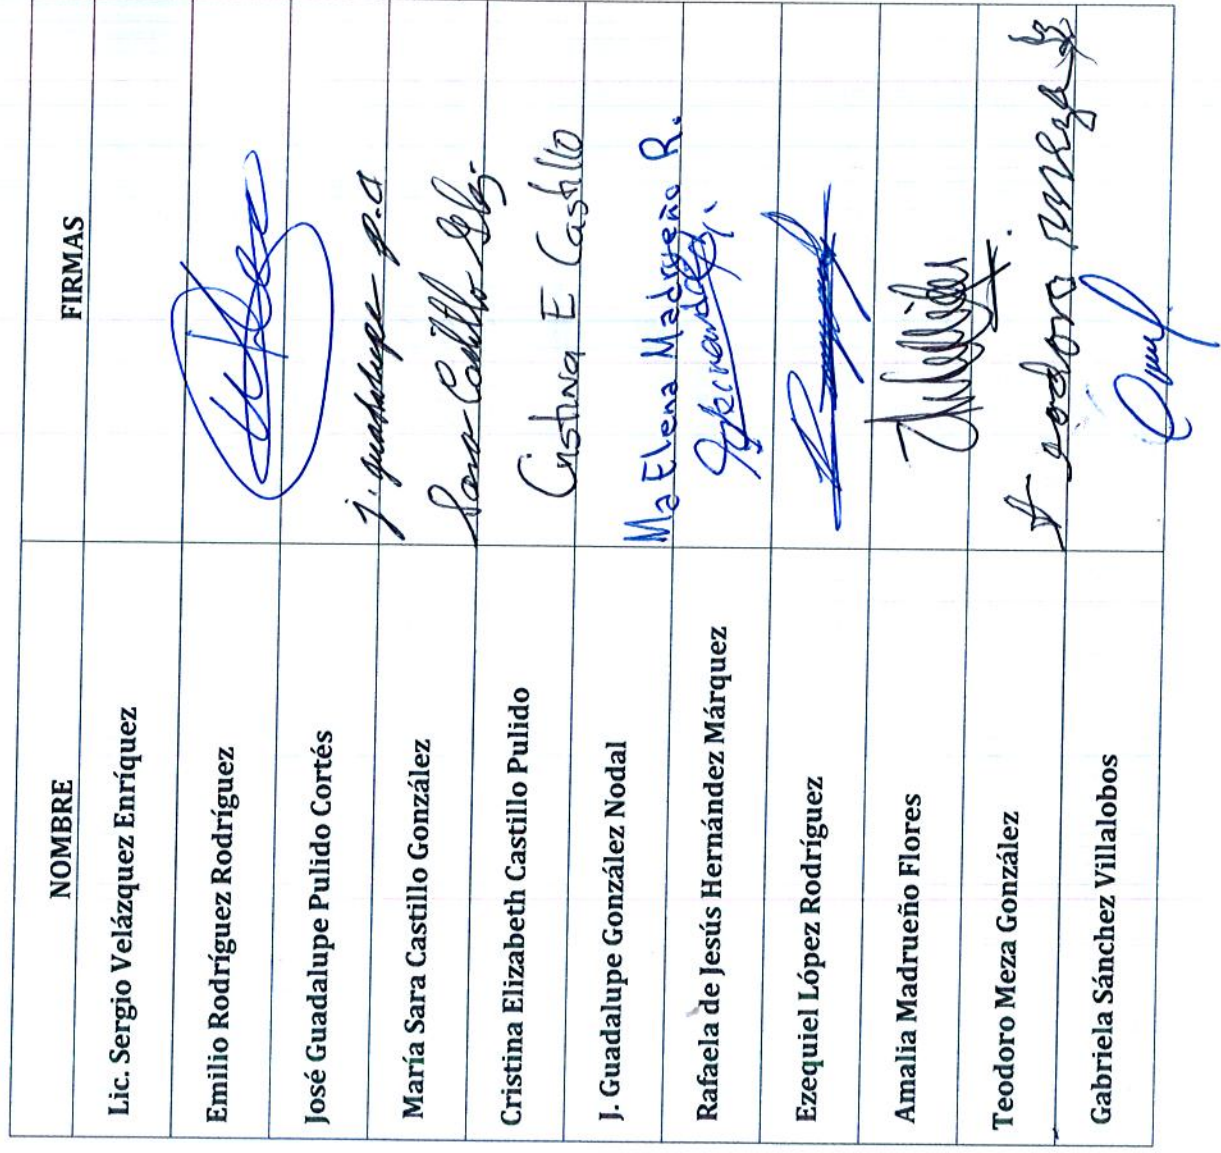 NOMBRE FIRMAS
Lic. Sergio Velázquez Enríquez
Emilio Rodríguez Rodríguez
José Guadalupe Pulido Cortés j. guadalupe p. c
María Sara Castillo González Sara Castillo Glz.
Cristina Elizabeth Castillo Pulido Cristina E Castillo
J. Guadalupe González Nodal Ma Elena Madrueño R.
Rafaela de Jesús Hernández Márquez
Ezequiel López Rodríguez
Amalia Madrueño Flores
Teodoro Meza González teodoro meza
Gabriela Sánchez Villalobos